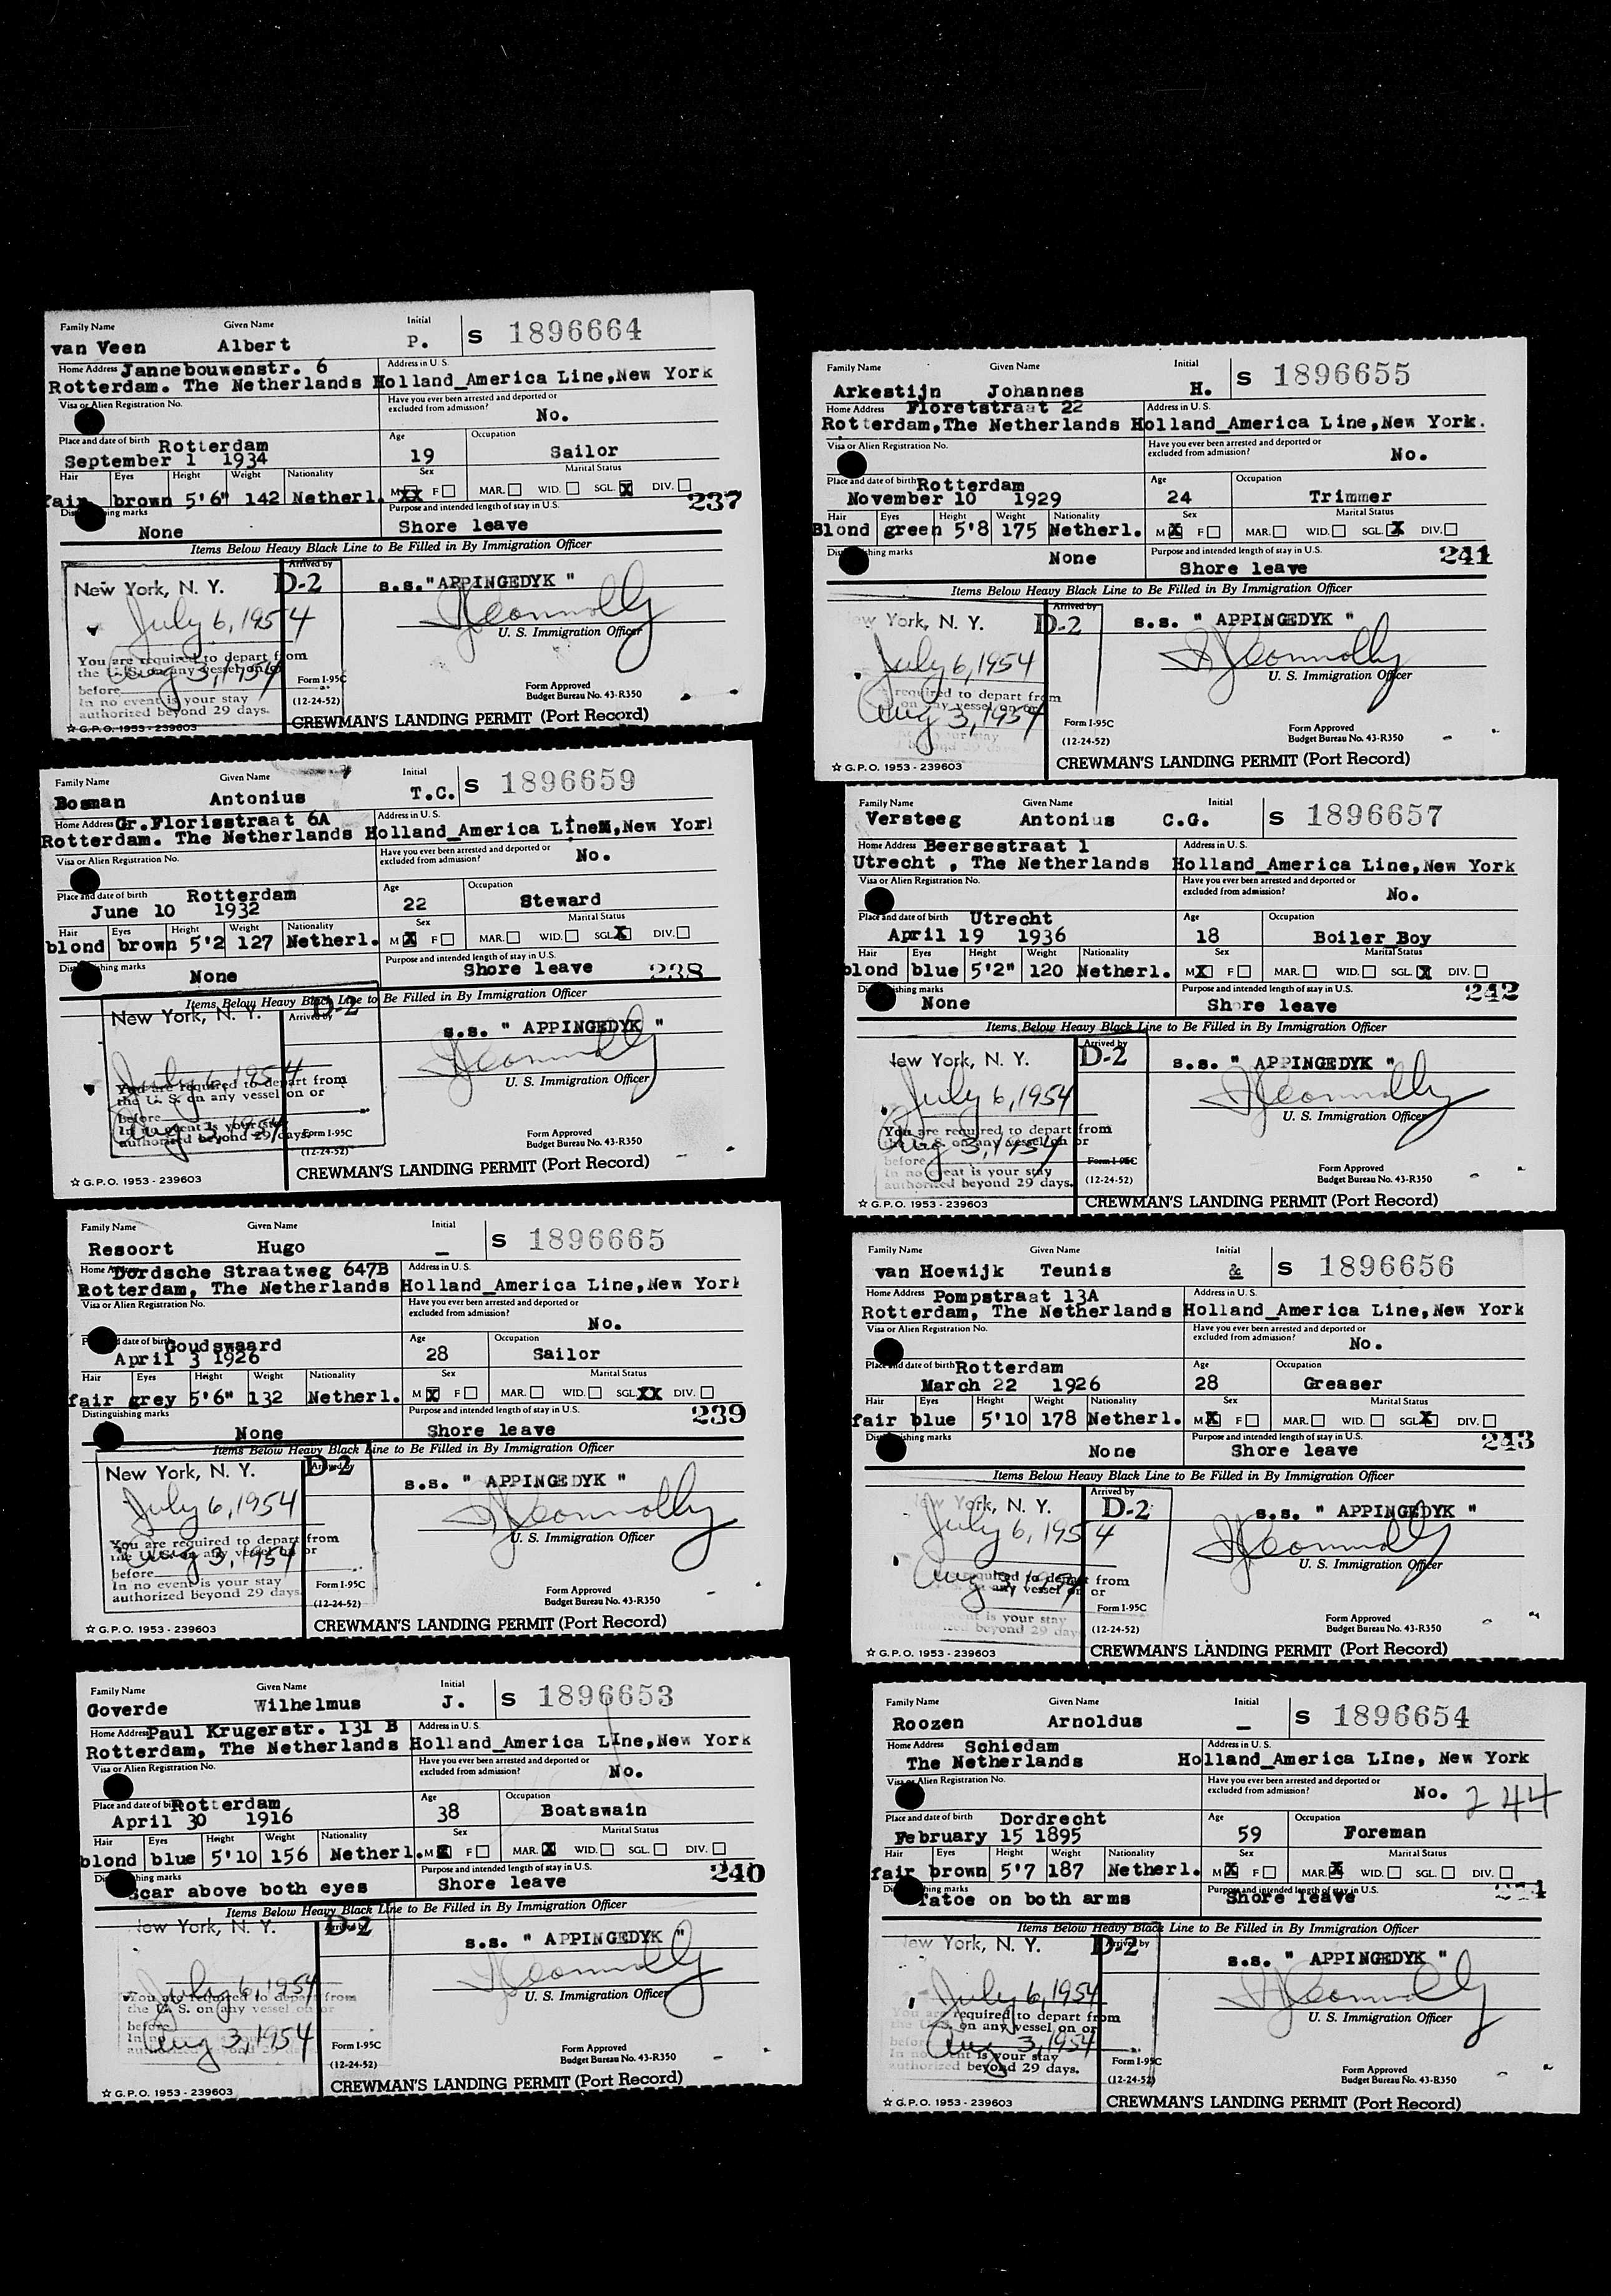 Family Name Given Name Initial
van Veen Albert P. S 1896664
Home Address Jannebouwenstr. 6 Address in U. S.
Rotterdam. The Netherlands Holland_America Line,New York
Visa or Alien Registration No. Have you ever been arrested and deported or
excluded from admission? No.
Place and date of birth Rotterdam Age Occupation
September 1 1934 19 Sailor
Hair Eyes Height Weight Nationality Sex Marital Status
fair brown 5'6" 142 Netherl. M XX F MAR. WID. SGL. X DIV. 237
marks Purpose and intended length of stay in U.S.
None Shore leave
Items Below Heavy Black Line to Be Filled in By Immigration Officer
New York, N. Y. D-2 Arrived by s.s."APPINGEDYK "
July 6, 1954 JConnolly
U. S. Immigration Officer
You are required to depart from
the U. S. on any vessel on or
before Aug 3, 1954
In no event is your stay
authorized beyond 29 days.
Form I-95C
(12-24-52)
Form Approved
Budget Bureau No. 43-R350
☆ G.P.O. 1953 - 239603 CREWMAN'S LANDING PERMIT (Port Record)
Family Name Given Name Initial
Bosman Antonius T.C. S 1896659
Home Address Gr.Florisstraat 6A Address in U. S.
Rotterdam. The Netherlands Holland_America Line,New Yorl
Visa or Alien Registration No. Have you ever been arrested and deported or
excluded from admission? No.
Place and date of birth Rotterdam Age Occupation
June 10 1932 22 Steward
Hair Eyes Height Weight Nationality Sex Marital Status
blond brown 5'2 127 Netherl. M X F MAR. WID. SGL. X DIV.
marks Purpose and intended length of stay in U.S.
None Shore leave 238
Items Below Heavy Black Line to Be Filled in By Immigration Officer
New York, N. Y. D-2 Arrived by s.s. " APPINGEDYK "
July 6, 1954 JConnolly
U. S. Immigration Officer
You are required to depart from
the U. S. on any vessel on or
before Aug 3, 1954
In no event is your stay
authorized beyond 29 days.
Form I-95C
(12-24-52)
Form Approved
Budget Bureau No. 43-R350
☆ G.P.O. 1953 - 239603 CREWMAN'S LANDING PERMIT (Port Record)
Family Name Given Name Initial
Resoort Hugo _ S 1896665
Home Address Dordsche Straatweg 647B Address in U. S.
Rotterdam, The Netherlands Holland_America Line,New York
Visa or Alien Registration No. Have you ever been arrested and deported or
excluded from admission? No.
date of birth Goudswaard Age Occupation
April 3 1926 28 Sailor
Hair Eyes Height Weight Nationality Sex Marital Status
fair grey 5'6" 132 Netherl. M X F MAR. WID. SGL. XX DIV. 239
Distinguishing marks Purpose and intended length of stay in U.S.
None Shore leave
Items Below Heavy Black Line to Be Filled in By Immigration Officer
New York, N. Y. D-2 Arrived by s.s. " APPINGEDYK "
July 6, 1954 JConnolly
U. S. Immigration Officer
You are required to depart from
the U. S. on any vessel on or
before Aug 3, 1954
In no event is your stay
authorized beyond 29 days
Form I-95C
(12-24-52)
Form Approved
Budget Bureau No. 43-R350
☆ G.P.O. 1953 - 239603 CREWMAN'S LANDING PERMIT (Port Record)
Family Name Given Name Initial
Goverde Wilhelmus J. S 1896653
Home Address Paul Krugerstr. 131 B Address in U. S.
Rotterdam, The Netherlands Holland_America LIne,New York
Visa or Alien Registration No. Have you ever been arrested and deported or
excluded from admission? No.
Place and date of birth Rotterdam Age Occupation
April 30 1916 38 Boatswain
Hair Eyes Height Weight Nationality Sex Marital Status
blond blue 5'10 156 Netherl. M X F MAR. X WID. SGL. DIV.
marks Purpose and intended length of stay in U.S. 240
Scar above both eyes Shore leave
Items Below Heavy Black Line to Be Filled in By Immigration Officer
New York, N. Y. D-2 Arrived by s.s. " APPINGEDYK "
July 6, 1954 JConnolly
U. S. Immigration Officer
You are required to depart from
the U. S. on any vessel on or
before
Aug 3, 1954
Form I-95C
(12-24-52)
Form Approved
Budget Bureau No. 43-R350
☆ G.P.O. 1953 - 239603 CREWMAN'S LANDING PERMIT (Port Record)
Family Name Given Name Initial
Arkestijn Johannes H. S 1896655
Home Address Floretstraat 22 Address in U. S.
Rotterdam,The Netherlands Holland_America Line,New York.
Visa or Alien Registration No. Have you ever been arrested and deported or
excluded from admission? No.
Place and date of birth Rotterdam Age Occupation
November 10 1929 24 Trimmer
Hair Eyes Height Weight Nationality Sex Marital Status
Blond green 5'8 175 Netherl. M X F MAR. WID. SGL. X DIV.
marks Purpose and intended length of stay in U.S. 241
None Shore leave
Items Below Heavy Black Line to Be Filled in By Immigration Officer
York, N. Y. D-2 Arrived by s.s. " APPINGEDYK "
July 6, 1954 JConnolly
U. S. Immigration Officer
required to depart from
on any vessel on or
Aug 3, 1954
Form I-95C
(12-24-52)
Form Approved
Budget Bureau No. 43-R350
☆ G.P.O. 1953 - 239603 CREWMAN'S LANDING PERMIT (Port Record)
Family Name Given Name Initial
Versteeg Antonius C.G. S 1896657
Home Address Beersestraat 1 Address in U. S.
Utrecht , The Netherlands Holland_America Line,New York
Visa or Alien Registration No. Have you ever been arrested and deported or
excluded from admission? No.
Place and date of birth Utrecht Age Occupation
April 19 1936 18 Boiler_Boy
Hair Eyes Height Weight Nationality Sex Marital Status
blond blue 5'2" 120 Netherl. M X F MAR. WID. SGL. X DIV.
marks Purpose and intended length of stay in U.S. 242
None Shore leave
Items Below Heavy Black Line to Be Filled in By Immigration Officer
New York, N. Y. D-2 Arrived by s.s. " APPINGEDYK "
July 6, 1954 JConnolly
U. S. Immigration Officer
You are required to depart from
the U. S. on any vessel on or
before Aug 3, 1954
In no event is your stay
authorized beyond 29 days.
Form I-95C
(12-24-52)
Form Approved
Budget Bureau No. 43-R350
☆ G.P.O. 1953 - 239603 CREWMAN'S LANDING PERMIT (Port Record)
Family Name Given Name Initial
van Hoewijk Teunis & S 1896656
Home Address Pompstraat 13A Address in U. S.
Rotterdam, The Netherlands Holland_America Line,New York
Visa or Alien Registration No. Have you ever been arrested and deported or
excluded from admission? No.
Place and date of birth Rotterdam Age Occupation
March 22 1926 28 Greaser
Hair Eyes Height Weight Nationality Sex Marital Status
fair blue 5'10 178 Netherl. M X F MAR. WID. SGL. X DIV.
marks Purpose and intended length of stay in U.S. 243
None Shore leave
Items Below Heavy Black Line to Be Filled in By Immigration Officer
New York, N. Y. Arrived by D-2 s.s. " APPINGEDYK "
July 6, 1954 JConnolly
U. S. Immigration Officer
Aug 3, 1954
required to depart from
any vessel on or
is your stay
beyond 29 day
Form I-95C
(12-24-52)
Form Approved
Budget Bureau No. 43-R350
☆ G.P.O. 1953 - 239603 CREWMAN'S LANDING PERMIT (Port Record)
Family Name Given Name Initial
Roozen Arnoldus _ S 1896654
Home Address Schiedam Address in U. S.
The Netherlands Holland_America LIne, New York
Visa or Alien Registration No. Have you ever been arrested and deported or
excluded from admission? No. 244
Place and date of birth Dordrecht Age Occupation
February 15 1895 59 Foreman
Hair Eyes Height Weight Nationality Sex Marital Status
fair brown 5'7 187 Netherl. M X F MAR. X WID. SGL. DIV.
marks Purpose and intended length of stay in U.S.
Tatoe on both arms Shore leave
Items Below Heavy Black Line to Be Filled in By Immigration Officer
New York, N. Y. D-2 Arrived by s.s. " APPINGEDYK "
July 6, 1954 JConnolly
U. S. Immigration Officer
You are required to depart from
the U. S. on any vessel on or
before Aug 3, 1954
In no event is your stay
authorized beyond 29 days.
Form I-95C
(12-24-52)
Form Approved
Budget Bureau No. 43-R350
☆ G.P.O. 1953 - 239603 CREWMAN'S LANDING PERMIT (Port Record)